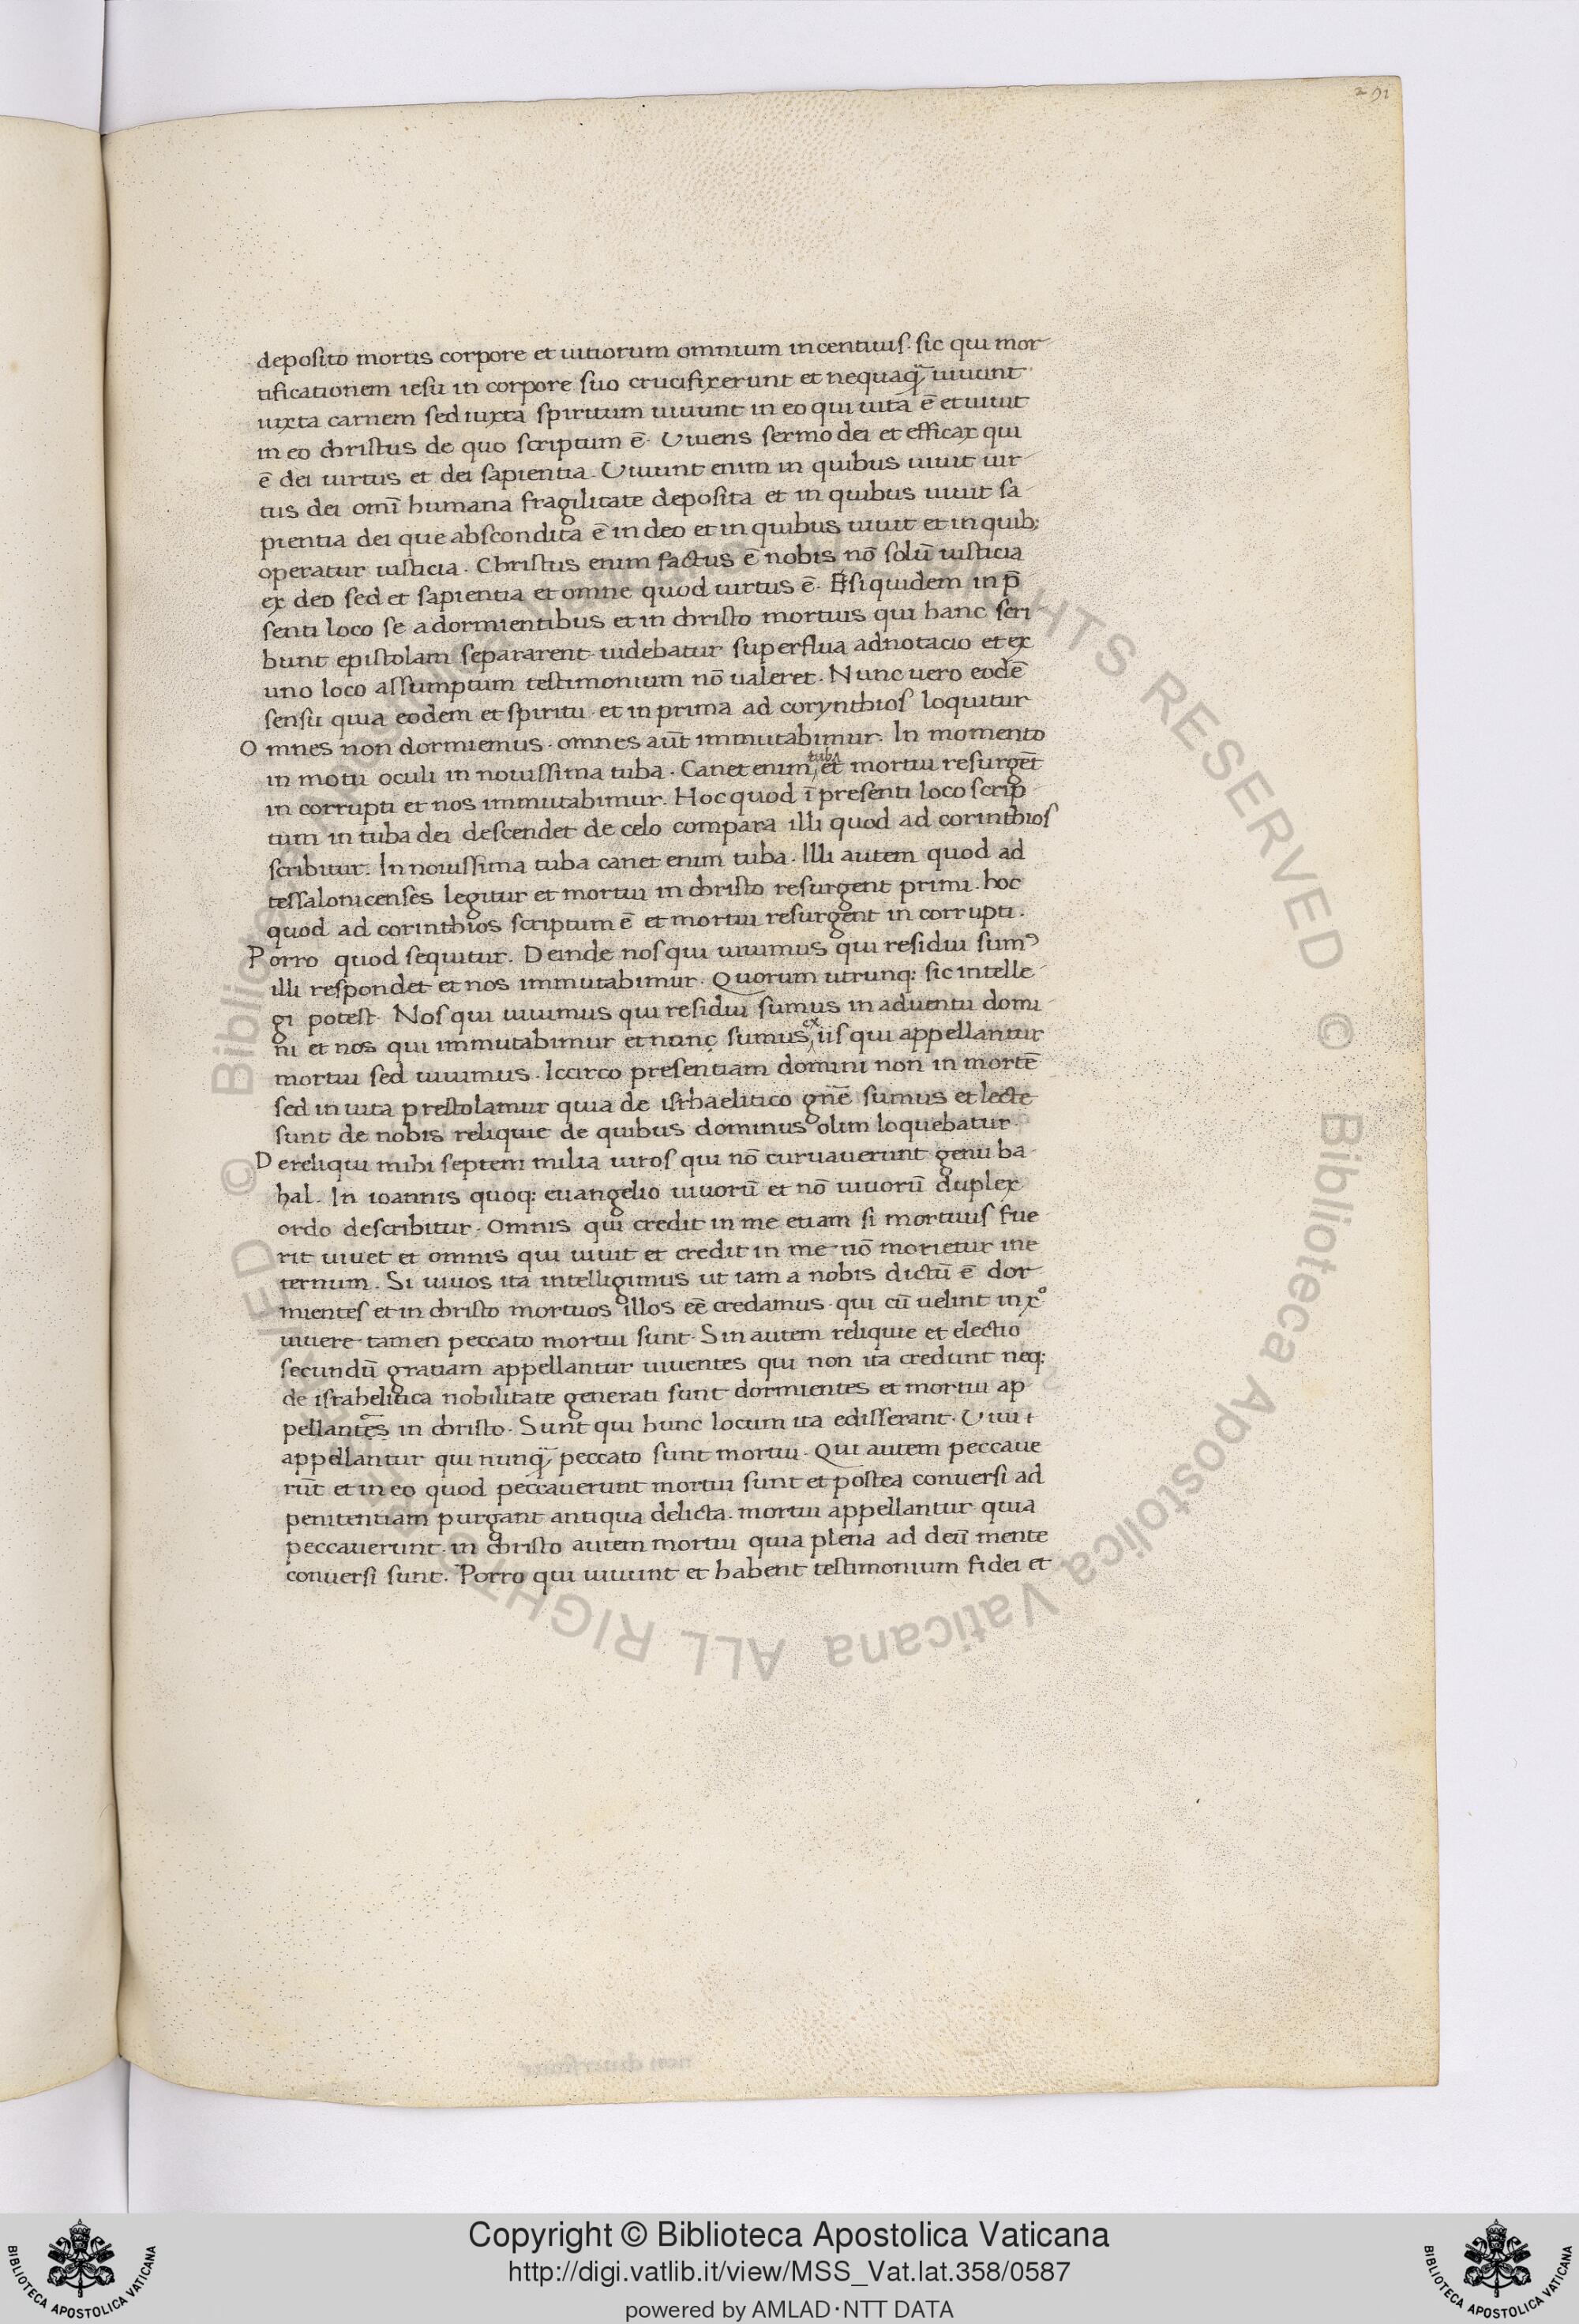 291
deposito mortis corpore et uitiorum omnium incentiuis. sic qui mor
tificationem iesu in corpore suo crucifixerunt et nequaq̃ uiuunt
iuxta carnem sed iuxta spiritum uiuunt in eo qui uita ē et uiuit
in eo christus de quo scriptum ē. Viuens sermo dei et efficax qui
ē dei uirtus et dei sapientia. Viuunt enim in quibus uiuit uir
tus dei omī humana fragilitate deposita et in quibus uiuit sa
pientia dei que abscondita ē in deo et in quibus uiuit et in quib;
operatur iusticia. Christus enim factus ē nobis nō solū iusticia
ex deo sed et sapientia et omne quod uirtus ē. Et siquidem in p̄
senti loco se a dormientibus et in christo mortuis qui hanc scri
bunt epistolam separarent uidebatur superflua adnotacio et ex
uno loco assumptum testimonium nō ualeret. Nunc uero eodē
sensu quia eodem et spiritu et in prima ad corynthios loquitur
Omnes non dormiemus. omnes aūt immutabimur. In momento
in motu oculi in nouissima tuba. Canet enim tuba et mortui resurgēt
in corrupti et nos immutabimur. Hoc quod ī presenti loco scrip
tum in tuba dei descendet de celo compara illi quod ad corinthios
scribitur. In nouissima tuba canet enim tuba. Illi autem quod ad
tessalonicenses legitur et mortui in christo resurgent primi. hoc
quod ad corinthios scriptum ē et mortui resurgent in corrupti.
Porro quod sequitur. Deinde nos qui uiuimus qui residui sumꝰ
illi respondet et nos immutabimur. Quorum utrunq: sic intelle
gi potest. Nos qui uiuimus qui residui sumus in aduentu domi
ni et nos qui immutabimur et nunc sumus ex iis qui appellantur
mortui sed uiuimus. Iccirco presentiam domini non in mortē
sed in uita prestolamur quia de isrhaelitico gn̄e sumus et lecte
sunt de nobis reliquie de quibus dominus olim loquebatur.
Dereliqui mihi septem milia uiros qui nō curuauerunt genu ba
hal. In ioannis quoq: euangelio uiuorū et nō uiuorū duplex
ordo describitur. Omnis qui credit in me etiam si mortuus fue
rit uiuet et omnis qui uiuit et credit in me nō morietur ine
ternum. Si uiuos ita intelligimus ut iam a nobis dictū ē dor
mientes et in christo mortuos illos eē credamus qui cū uelint in xº
uiuere tamen peccato mortui sunt. Sin autem reliquie et electio
secundū gratiam appellantur uiuentes qui non ita credunt neq:
de israhelitica nobilitate generati sunt dormientes et mortui ap
pellantes in christo. Sunt qui hunc locum ita edisserant. Viui
appellantur qui nunq̃ peccato sunt mortui. Qui autem peccaue
rūt et in eo quod peccauerunt mortui sunt et postea conuersi ad
penitentiam purgant antiqua delicta. mortui appellantur quia
peccauerunt. in christo autem mortui quia plena ad deū mente
conuersi sunt. Porro qui uiuunt et habent testimonium fidei et
© Biblioteca Apostolica Vaticana ALL RIGHTS RESERVED
© Biblioteca Apostolica Vaticana ALL RIGHTS RESERVED
Copyright © Biblioteca Apostolica Vaticana
http://digi.vatlib.it/view/MSS_Vat.lat.358/0587
powered by AMLAD·NTT DATA
BIBLIOTECA APOSTOLICA VATICANA
BIBLIOTECA APOSTOLICA VATICANA